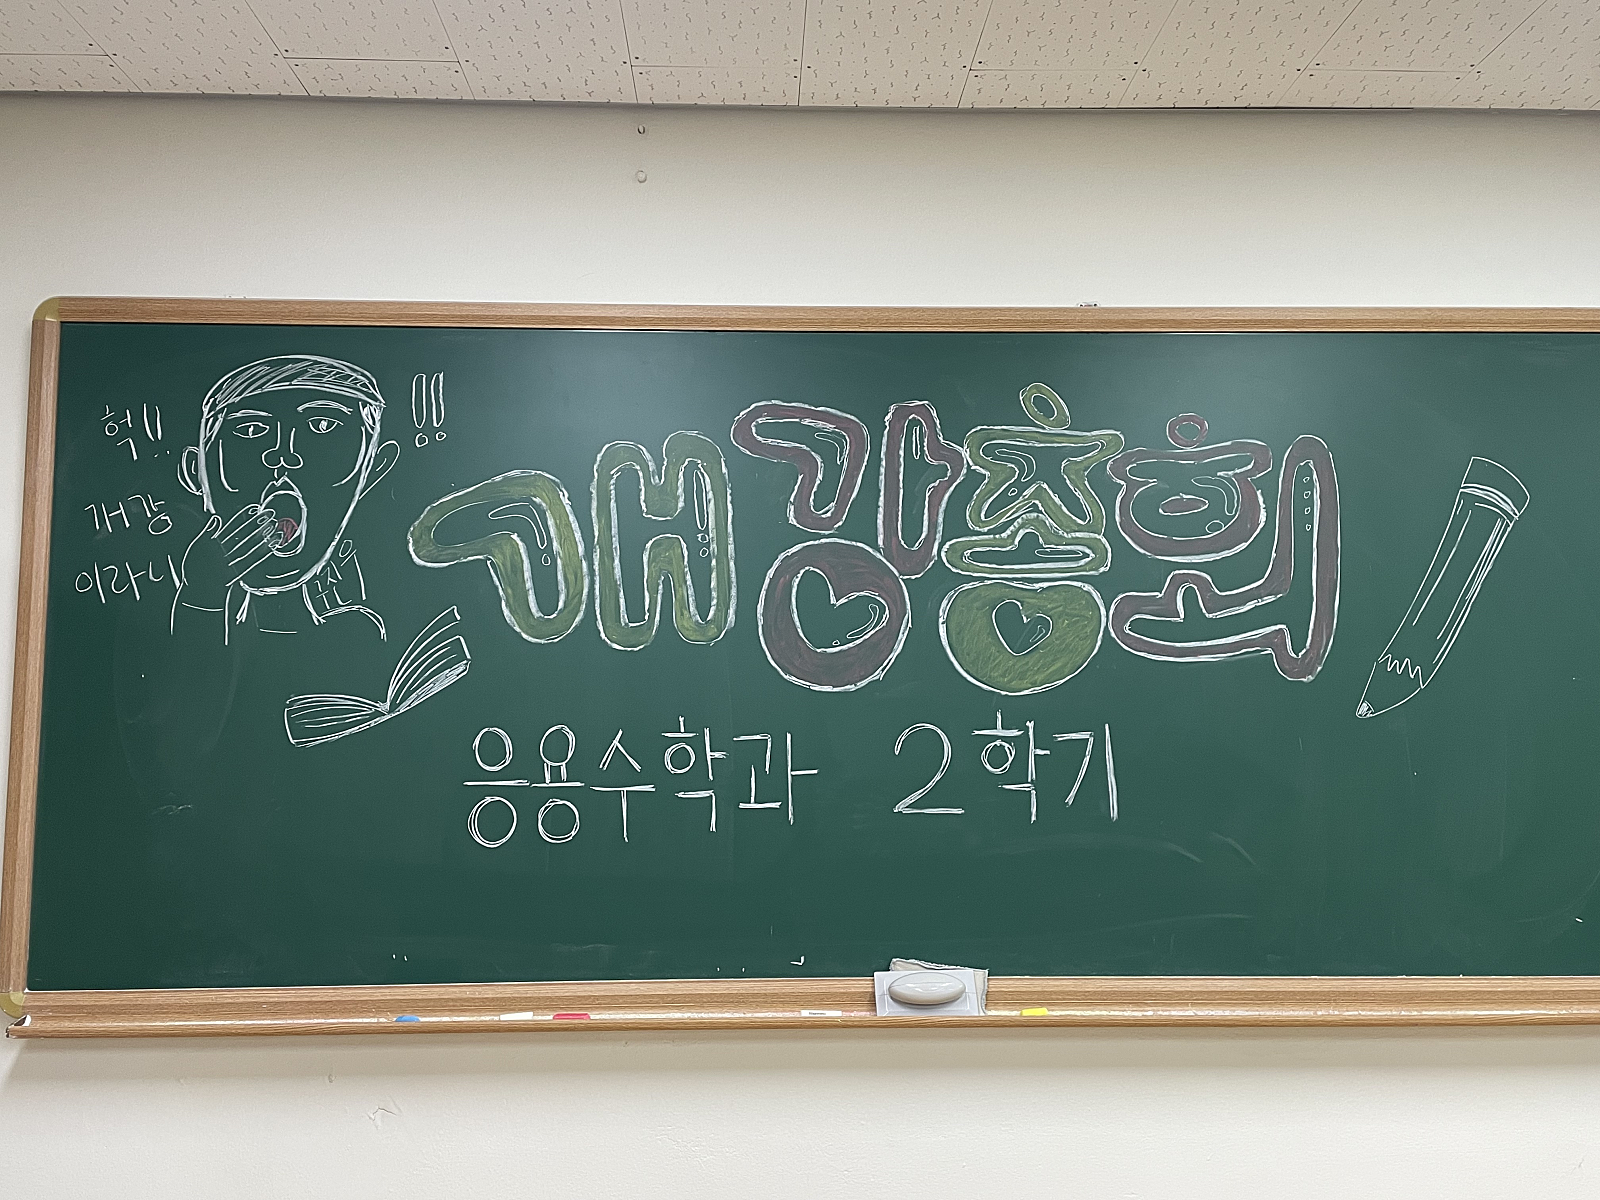 헉!!
개강
이라니
!!
개강총회
응용수학과 2학기